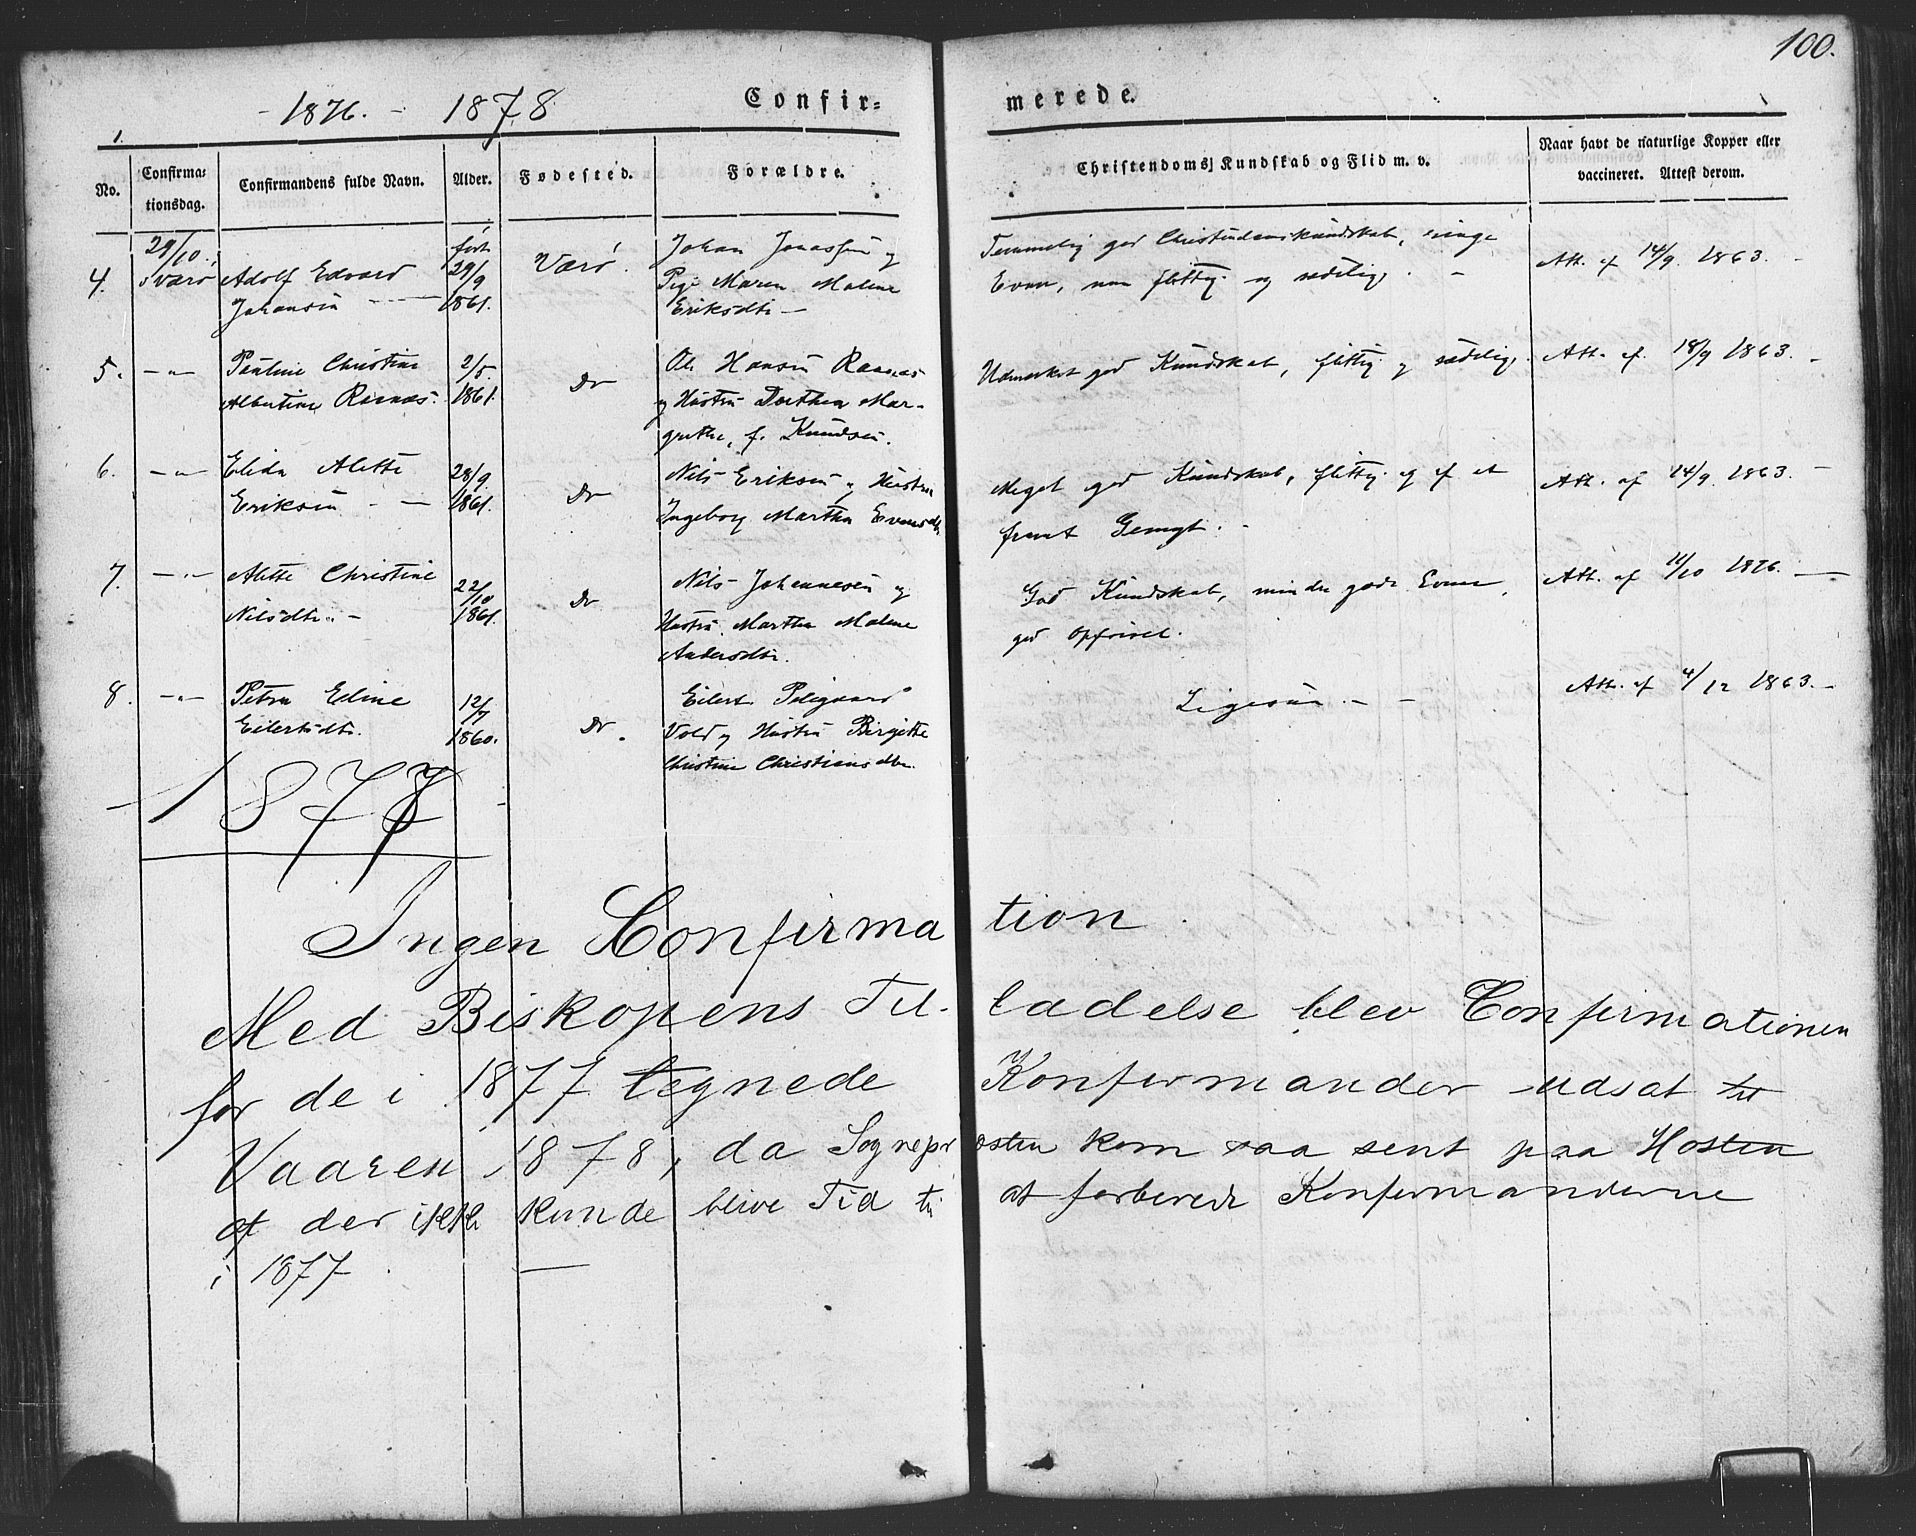 100.
- 1876. - 1878
Confir=
merede.
1.
No.
Confirma=
tionsdag.
Confirmandens fulde Navn.
Alder.
Fødested.
Forældre.
Christendoms Kundskab og Flid m. v.
Naar havt de naturlige Kopper eller
vaccineret. Attest derom.
4.
29/10
i Værø
Adolf Edvard
Johansen
født
29/9
1861.
Værø.
Johan Jonassen og
Pige Maren Malene
Eriksdtr
Temmelig god Christendomskundskab, ringe
Evner, men flittig og sædelig.
Att. af 14/9 1863.
5.
- " -
Pauline Christine
Albertine Røsnæs.
2/5
1861.
Do
Ole Hansen Røsnæs
og Hustru Dorthea Mar-
grethe, f. Knudsen.
Udmærket god Kundskab, flittig og sædelig.
Att. af 18/9 1863.
6.
- " -
Elida Alette
Eriksen
28/9
1861.
Do
Nils Eriksen og Hustru
Ingeborg Martha Evensdtr
Meget god Kundskab, flittig og af et
fromt Gemyt.
Att. af 14/9 1863.
7.
- " -
Alette Christine
Nilsdtr.
22/10
1861.
Do
Nils Johannesen og
Hustru Martha Malene
Andersdtr.
God Kundskab, mindre gode Evner,
god Opførsel.
Att. af 11/10 1876.
8.
- " -
Petra Eline
Eilertsdtr.
12/7
1860.
Do.
Eilert
Vold og Hustru Birgitte
Christine Christiansdtr.
Ligesaa.
Att. af 4/12 1863.
1878
Ingen Confirmation.
Med Biskopens Til-ladelse blev Confirmationen
for de i 1877 tegnede Konfirmander udsat til
Vaaren 1878, da Sognepræsten kom saa sent paa Høsten
at der ikke kunde blive Tid til at forberede Konfirmanderne
i 1877.